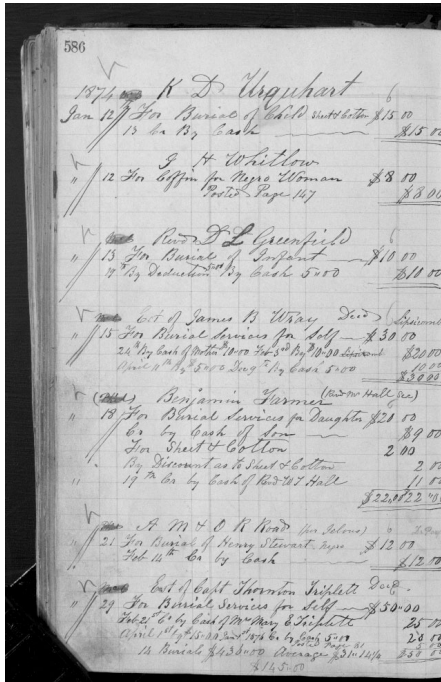 586
1874 K D Urquhart
Jan 12 For Burial of Child Sheet & Cotton $15 00
13 Cr By Cash $15 00
J H Whitlow
" 12 For Coffin for Negro Woman $8 00
Posted Page 147 $8 00
Revd D L Greenfield
" 13 For Burial of Infant $10 00
19 By Deduction 5.00 By Cash 5.00 $10 00
Est of James B Wray Decd (Lipscomb
" 15 For Burial Services for Self $30 00
24th By Cash of Mother 10.00 Feb 3rd By $10.00 Lipscomb $20 00
April 11th By $5.00 Dec 9th By Cash 5.00 10 00
$30 00
Benjamin Farmer (Revd W Hall Sec)
" 18 For Burial Services for Daughter $20 00
Cr by Cash of Son $9 00
For Sheet & Cotton 2 00
By Discount as to Sheet & Cotton 2 00
" 19th Cr by Cash of Revd W Hall 11 00
$22,00 22 00
A M & O R Road
" 21 For Burial of Henry Stewart Negro $12 00
Feb 14th Cr by Cash $12 00
Est of Capt Thornton Triplett Decd
" 29 For Burial Services for Self $50.00
Feb 25 Cr by Cash of Mrs Mary E Triplett 25 00
April 1st 15.00 1876 Cr by Cash 5.00 20 00
Posted Page 81 5 00
14 Burials $436.00 Average $31.14 1/4 $50 00
$145.00